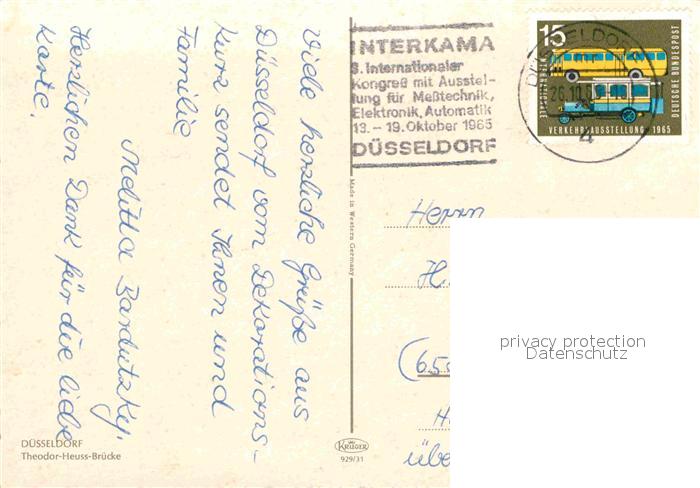 Viele herzliche Grüße aus
Düsseldorf vom Dekorations-
kurs sendet Ihnen und
Familie
Melitta Bardutzky.
Herzlichen Dank für die liebe
Karte.
DÜSSELDORF
Theodor-Heuss-Brücke
Made in Western Germany
KRÜGER
929/31
INTERKAMA
3. Internationaler
Kongreß mit Ausstel-
lung für Meßtechnik,
Elektronik, Automatik
13. – 19. Oktober 1965
DÜSSELDORF
15
DEUTSCHE BUNDESPOST
VERKEHRSAUSSTELLUNG 1965
DÜSSELDORF
4
Herrn
H.
(65
H
übe
privacy protection
Datenschutz